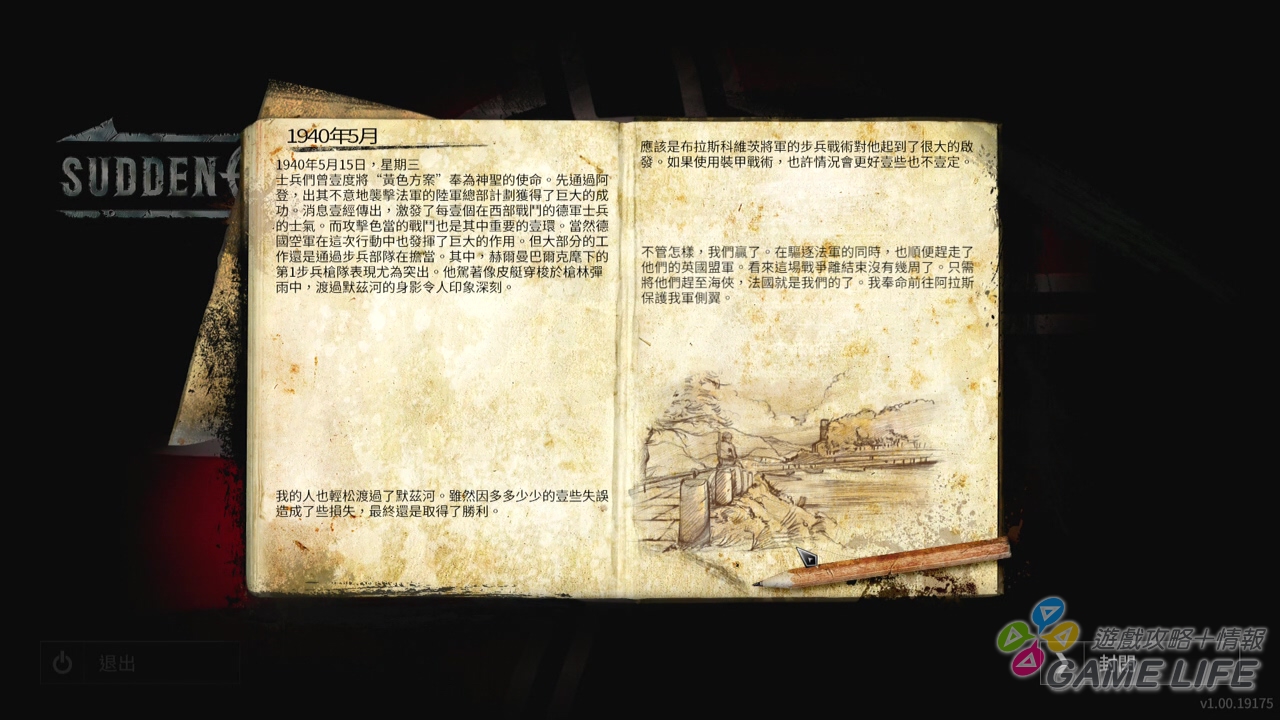 SUDDEN
1940年5月
1940年5月15日，星期三
士兵們曾壹度將“黃色方案”奉為神聖的使命。先通過阿
登，出其不意地襲擊法軍的陸軍總部計劃獲得了巨大的成
功。消息壹經傳出，激發了每壹個在西部戰鬥的德軍士兵
的士氣。而攻擊色當的戰鬥也是其中重要的壹環。當然德
國空軍在這次行動中也發揮了巨大的作用。但大部分的工
作還是通過步兵部隊在擔當。其中，赫爾曼巴爾克麾下的
第1步兵槍隊表現尤為突出。他駕著像皮艇穿梭於槍林彈
雨中，渡過默茲河的身影令人印象深刻。
我的人也輕松渡過了默茲河。雖然因多多少少的壹些失誤
造成了些損失，最終還是取得了勝利。
應該是布拉斯科維茨將軍的步兵戰術對他起到了很大的啟
發。如果使用裝甲戰術，也許情況會更好壹些也不壹定。
不管怎樣，我們贏了。在驅逐法軍的同時，也順便趕走了
他們的英國盟軍。看來這場戰爭離結束沒有幾周了。只需
將他們趕至海俠，法國就是我們的了。我奉命前往阿拉斯
保護我軍側翼。
退出
封閉
遊戲攻略+情報
GAME LIFE
v1.00.19175